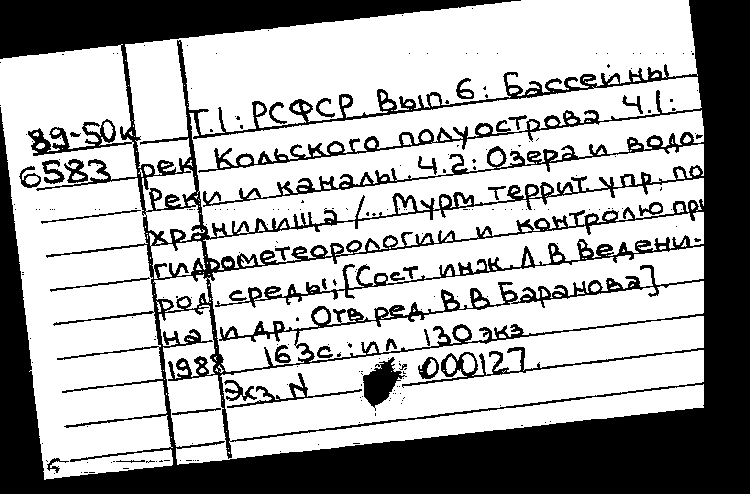 89-50к
6583
Т.1: РСФСР. Вып.6: Бассейны
рек Кольского полуострова. Ч.1:
Реки и каналы. Ч.2: Озера и водо-
хранилища /... Мурм. террит. упр. по
гидрометеорологии и контролю при
род. среды; [Сост. инж. Л.В. Ведени-
на и др.; Отв. ред. В.В. Баранова].
1988 163с.: ил. 130 экз.
Экз. N 000127.